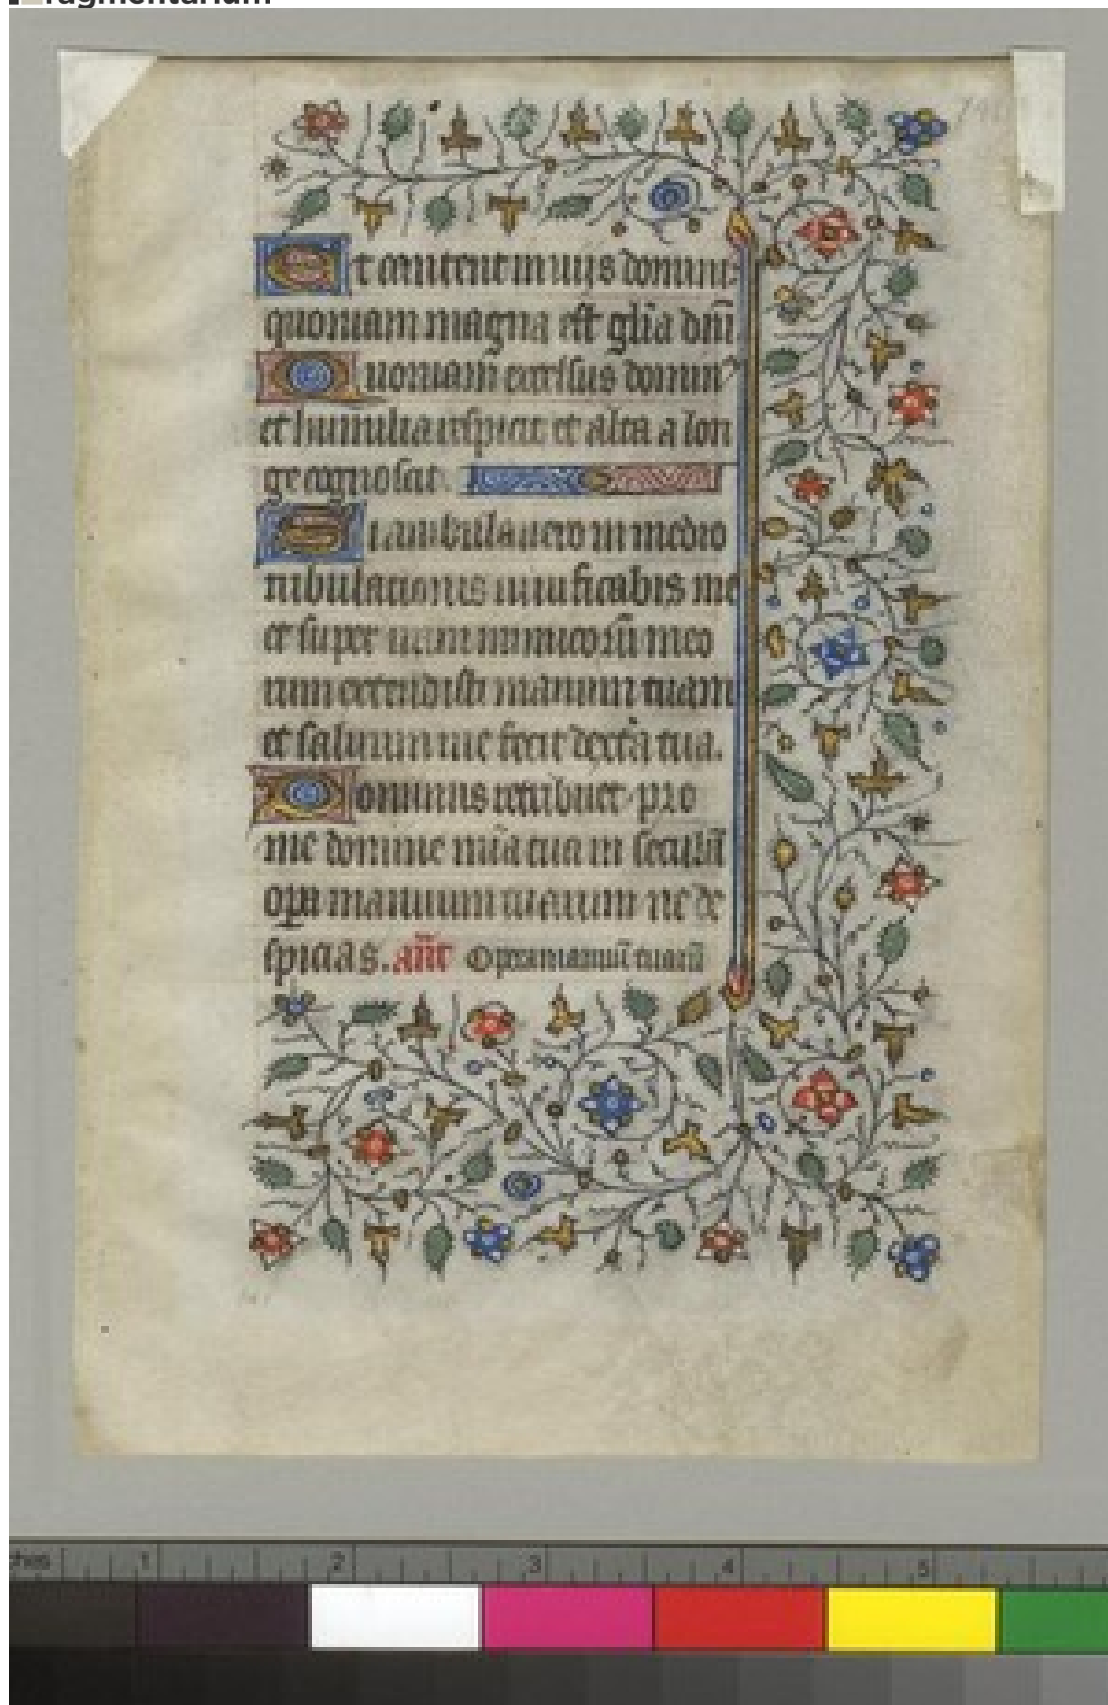 fragmentarium
Et cantent in vijs domini:
quoniam magna est glia dni
Quoniam excelsus domin
et humilia respicit et alta a lon
ge cognoscit.
Si ambulauero in medio
tribulationis viuificabis me
et super iram inimicorum meo
rum extendisti manum tuam
et saluum me fecit dextera tua.
Dominus retribuet pro
me domine mia tua in seculum
opa manuum tuarum ne de
spicias. ant Opera manuu tuaru
ches 1 2 3 4 5